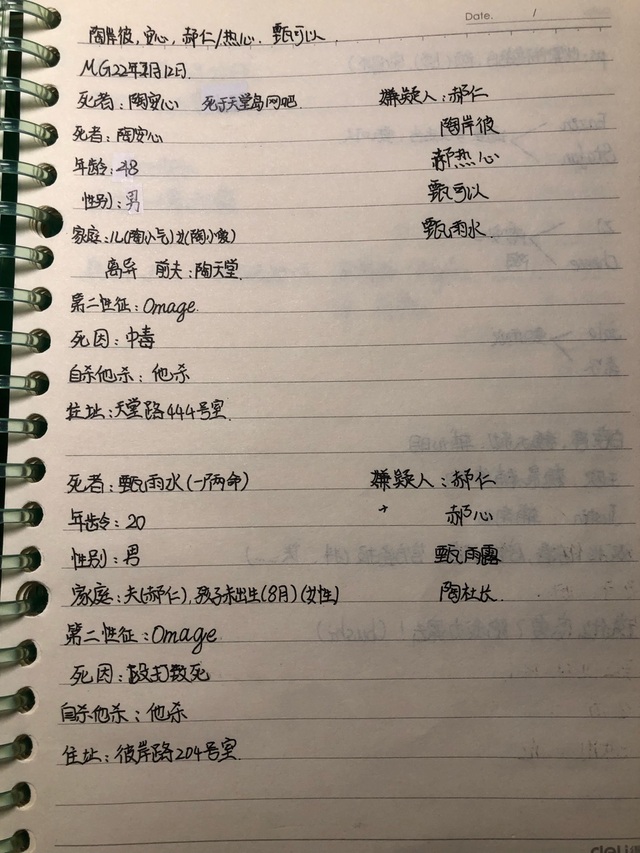 Date. /
陶岸彼,安心,郝仁/热心.甄可以
MG22年2月12日.
死者:陶安心 死于天堂岛网吧. 嫌疑人:郝仁
死者:陶安心 陶岸彼
年龄:48 郝热心
性别:男 甄可以
家庭:儿(陶小气)女(陶小爱) 甄雨水
离异 前夫:陶天堂.
第二性征:Omage.
死因:中毒
自杀他杀:他杀
住址:天堂路444号室.
死者:甄雨水(一尸两命) 嫌疑人:郝仁
年龄:20 郝心
性别:男 甄雨露
家庭:夫(郝仁),孩子未出生(8月)(女性) 陶社长.
第二性征:Omage.
死因:殴打致死
自杀他杀:他杀
住址:彼岸路204号室.
deli